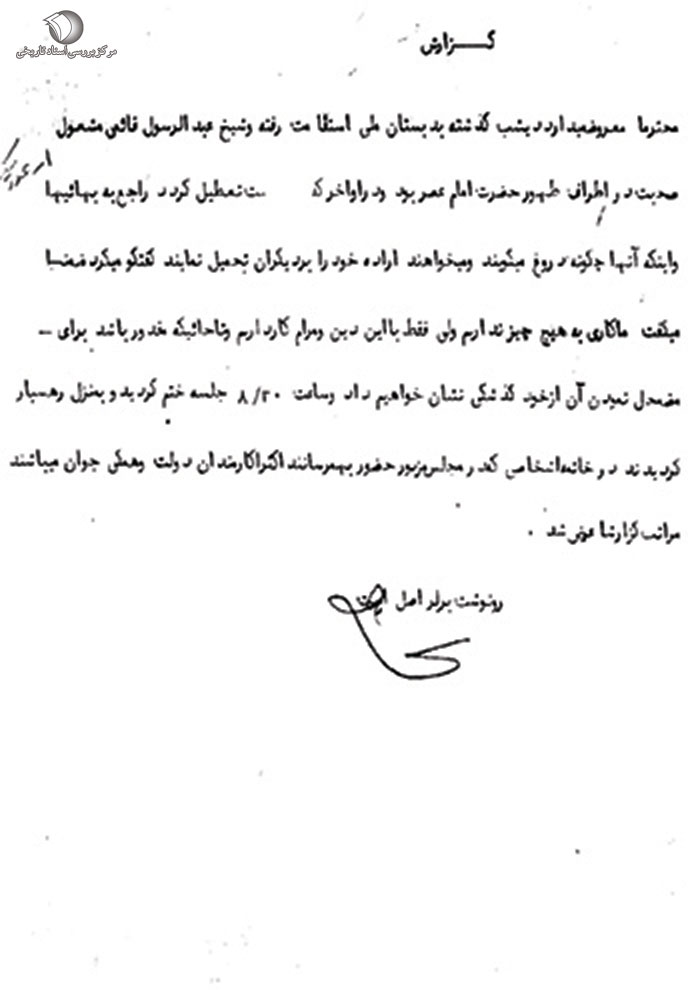 مرکز بررسی اسناد تاریخی
گـــزارش
محترما معروضمیدارد دیشب گذشته بدبستان ملی استقامت رفته وشیخ عبدالرسول قائمی مشغول
صحبت در اطراف ظهور حضرت امام عصر بود ودراواخر که ست تعطیل گردد راجع به بهائیها
واینکه آنها چگونه دروغ میگویند ومیخواهند اراده خود را بردیگران تحمیل نمایند گفتگو میکرد ضمنا
میگفت ماکاری به هیچ چیز نداریم ولی فقط بااین دین ومرام کارداریم وتاجائیکه مقدورباشد برای —
مضمحل نمودن آن ازخود گذشتگی نشان خواهیم داد وساعت ۸/۳۰ جلسه ختم گردید و بمنزل رهسپار
گردیدند درخاتمه اشخاصی که در مجلس مزبور حضور بهمرسانند اکثرا کارمندان دولت وهمگی جوان میباشند
مراتب گزارشا عرض شد .
رونوشت برابر اصل است